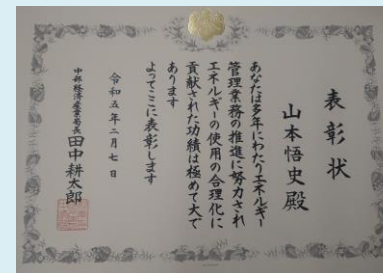 表彰状
山本悟史殿
あなたは多年にわたりエネルギー
管理業務の推進に努力され
エネルギーの使用の合理化に
貢献された功績は極めて大で
あります
よってここに表彰します
令和五年二月七日
中部経済産業局長 田中耕太郎